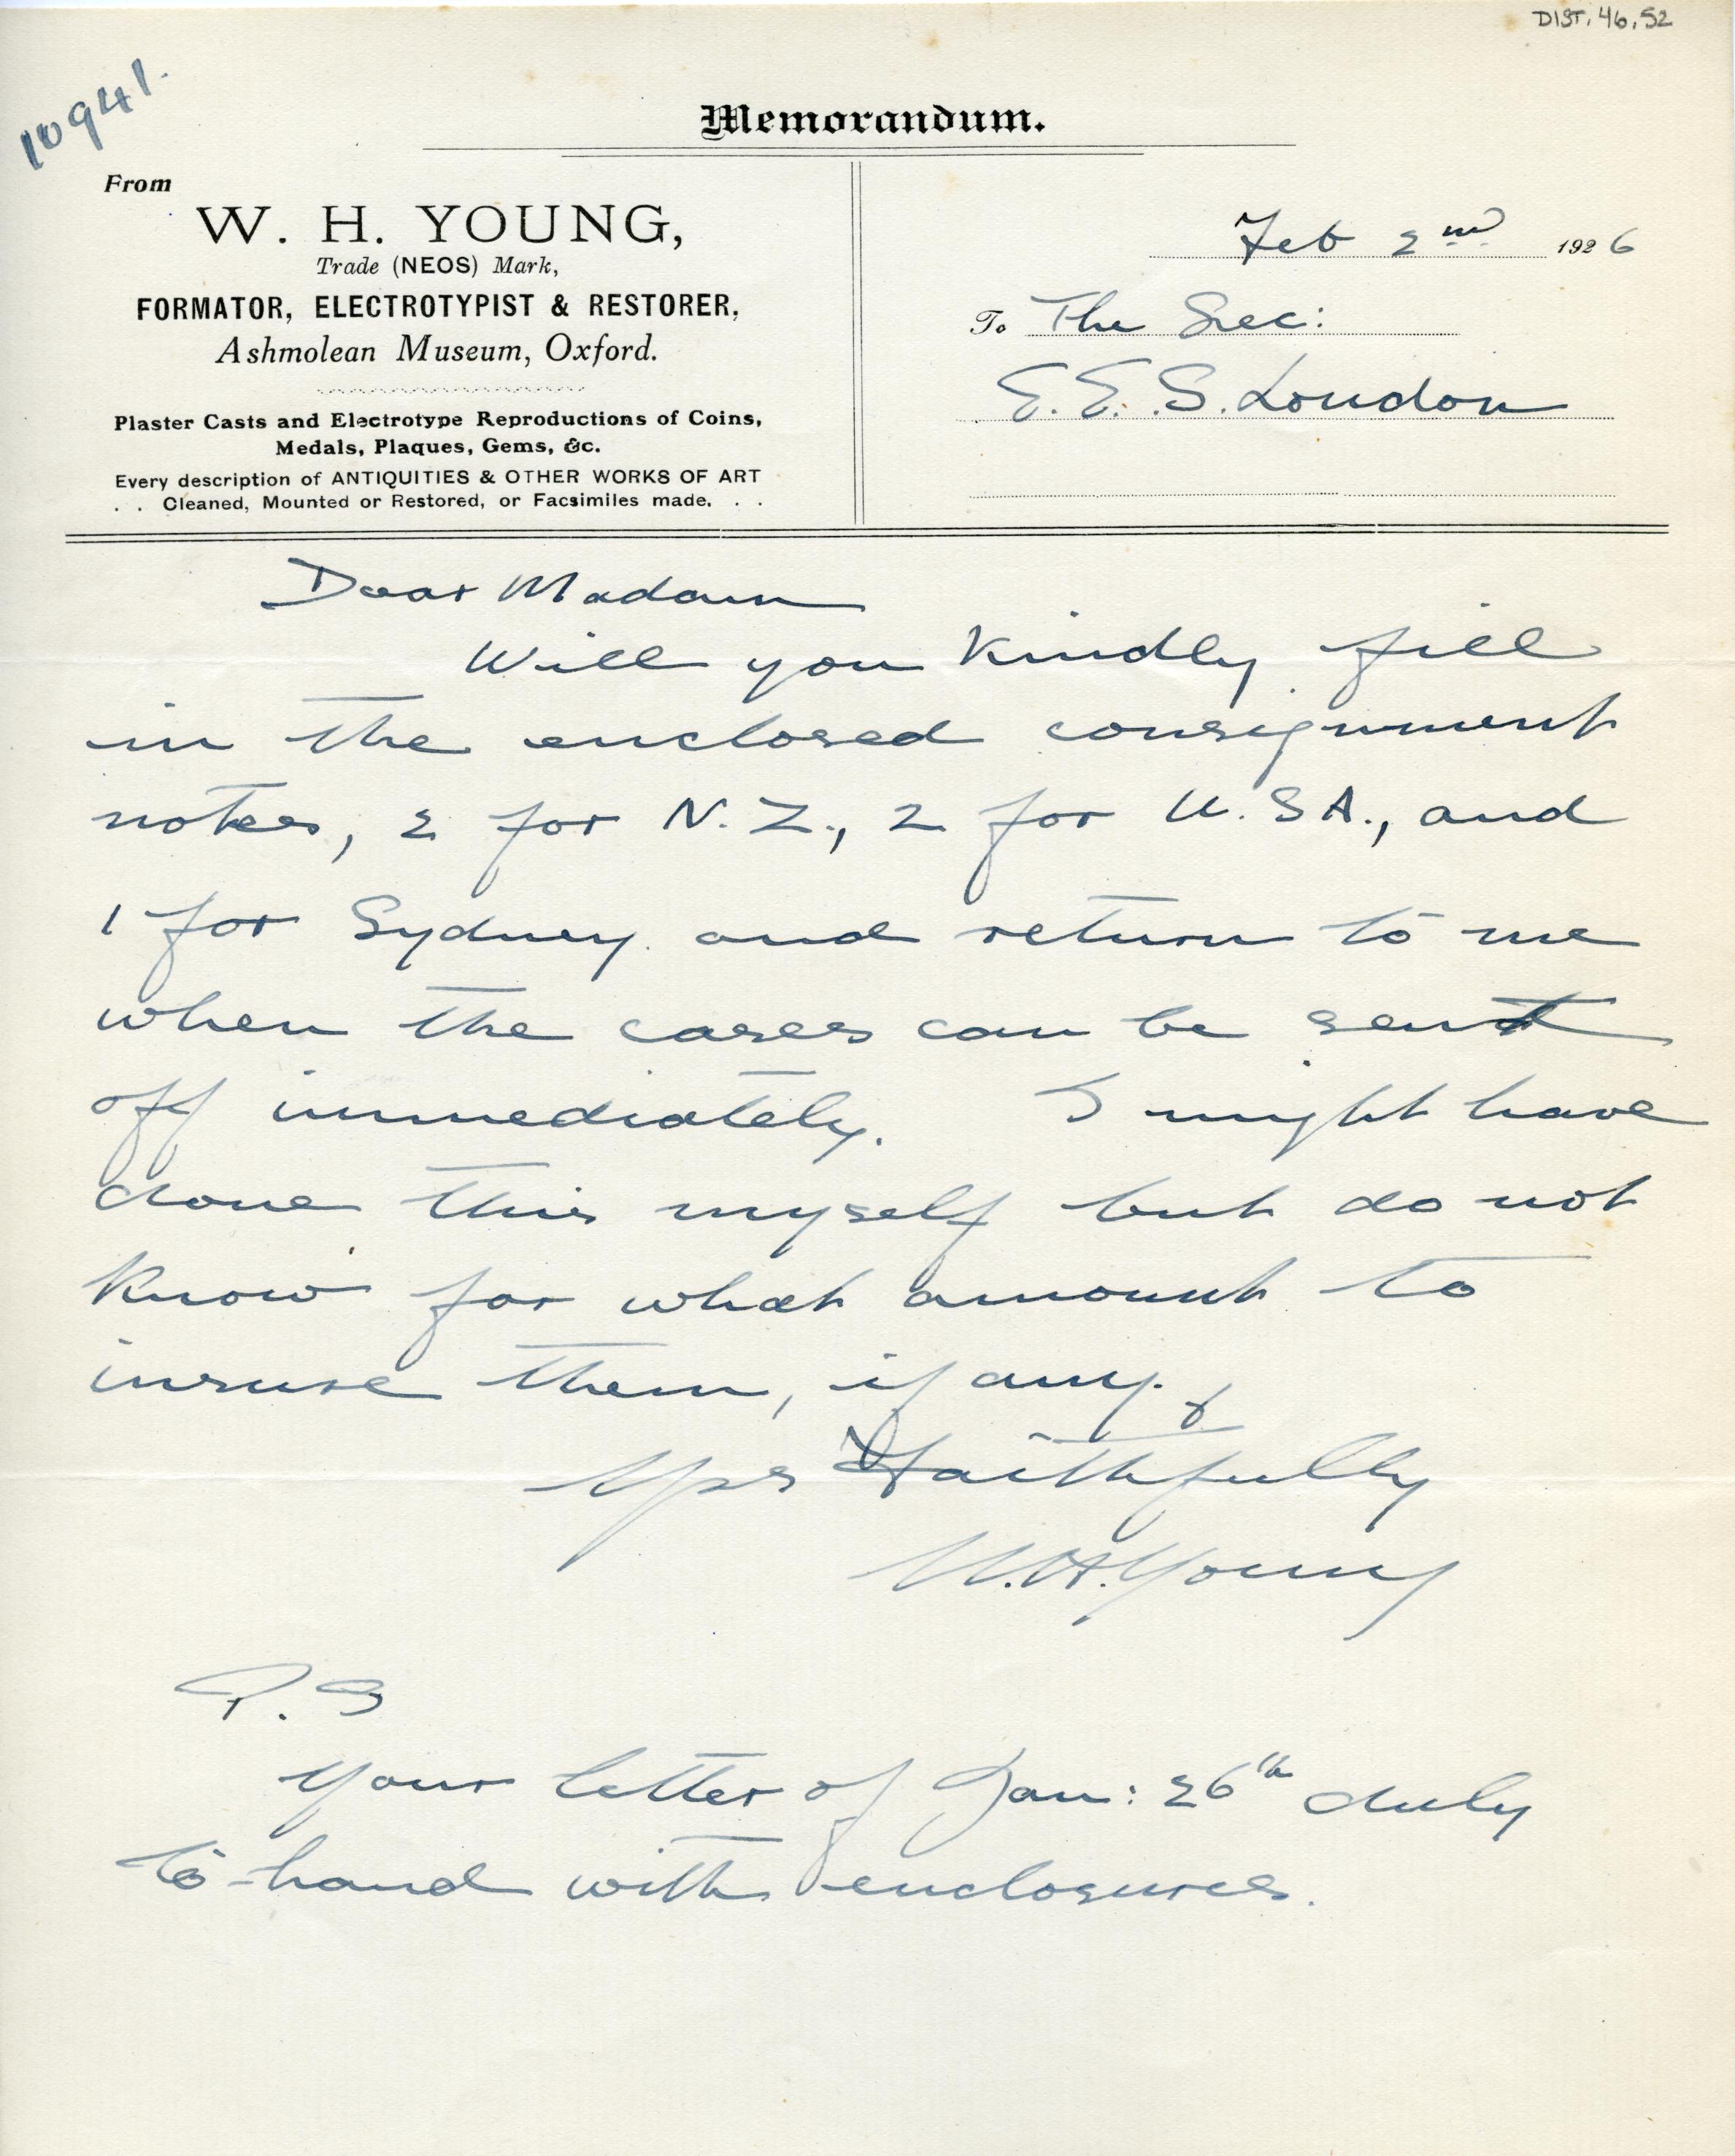 DIST. 46.52
10941.
Memorandum.
From
W. H. YOUNG,
Trade (NEOS) Mark,
FORMATOR, ELECTROTYPIST & RESTORER,
Ashmolean Museum, Oxford.
Plaster Casts and Electrotype Reproductions of Coins,
Medals, Plaques, Gems, &c.
Every description of ANTIQUITIES & OTHER WORKS OF ART
. . Cleaned, Mounted or Restored, or Facsimiles made. . .
Feb 2nd 1926
To The Sec:
E.E.S. London
Dear Madam
Will you kindly fill
in the enclosed consignment
notes, 2 for N.Z., 2 for U.S.A., and
1 for Sydney. and return to me
when the cases can be sent
off immediately. I might have
done this myself but do not
know for what amount to
insure them, if any.
Yrs faithfully
W.H. Young
P.S
Your letter of Jan: 26th duly
to hand with enclosures.